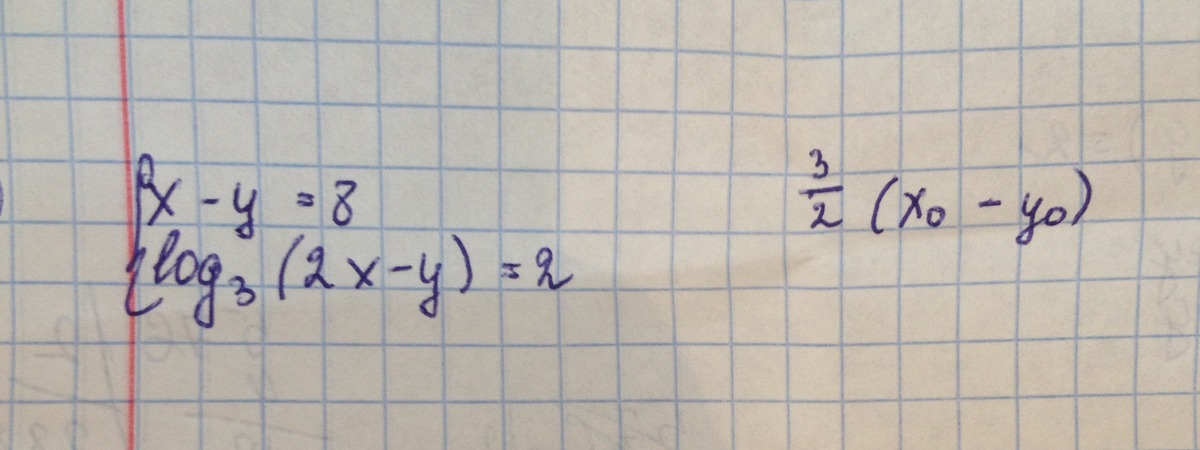 x - y = 8
log₃ (2x - y) = 2
3/2 (x₀ - y₀)